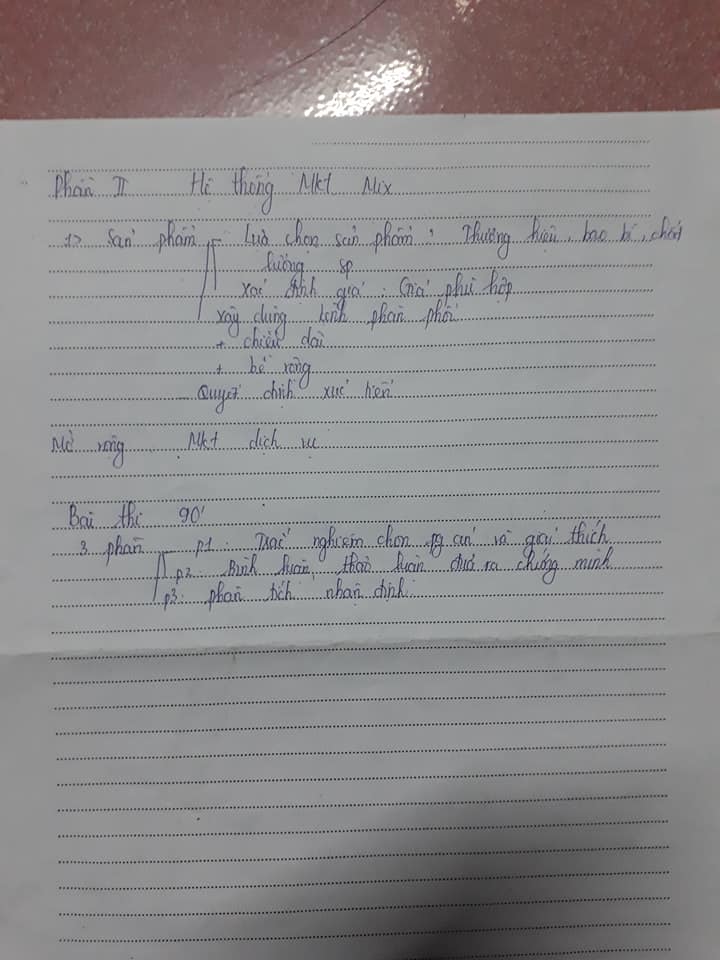 Phần II Hệ thống Mkt Mix
1> Sản phẩm - Lựa chọn sản phẩm: Thương hiệu, bao bì, chất
lượng sp
Xác định giá: Giá phù hợp
Xây dựng kênh phân phối
+ chiều dài
+ bề rộng
- Quyết định xúc tiến
Mở rộng Mkt dịch vụ
Bài thi 90'
3 phần - p1: Trắc nghiệm chọn đáp án và giải thích
p2: Bình luận, thảo luận đưa ra chứng minh
p3: phân tích nhận định